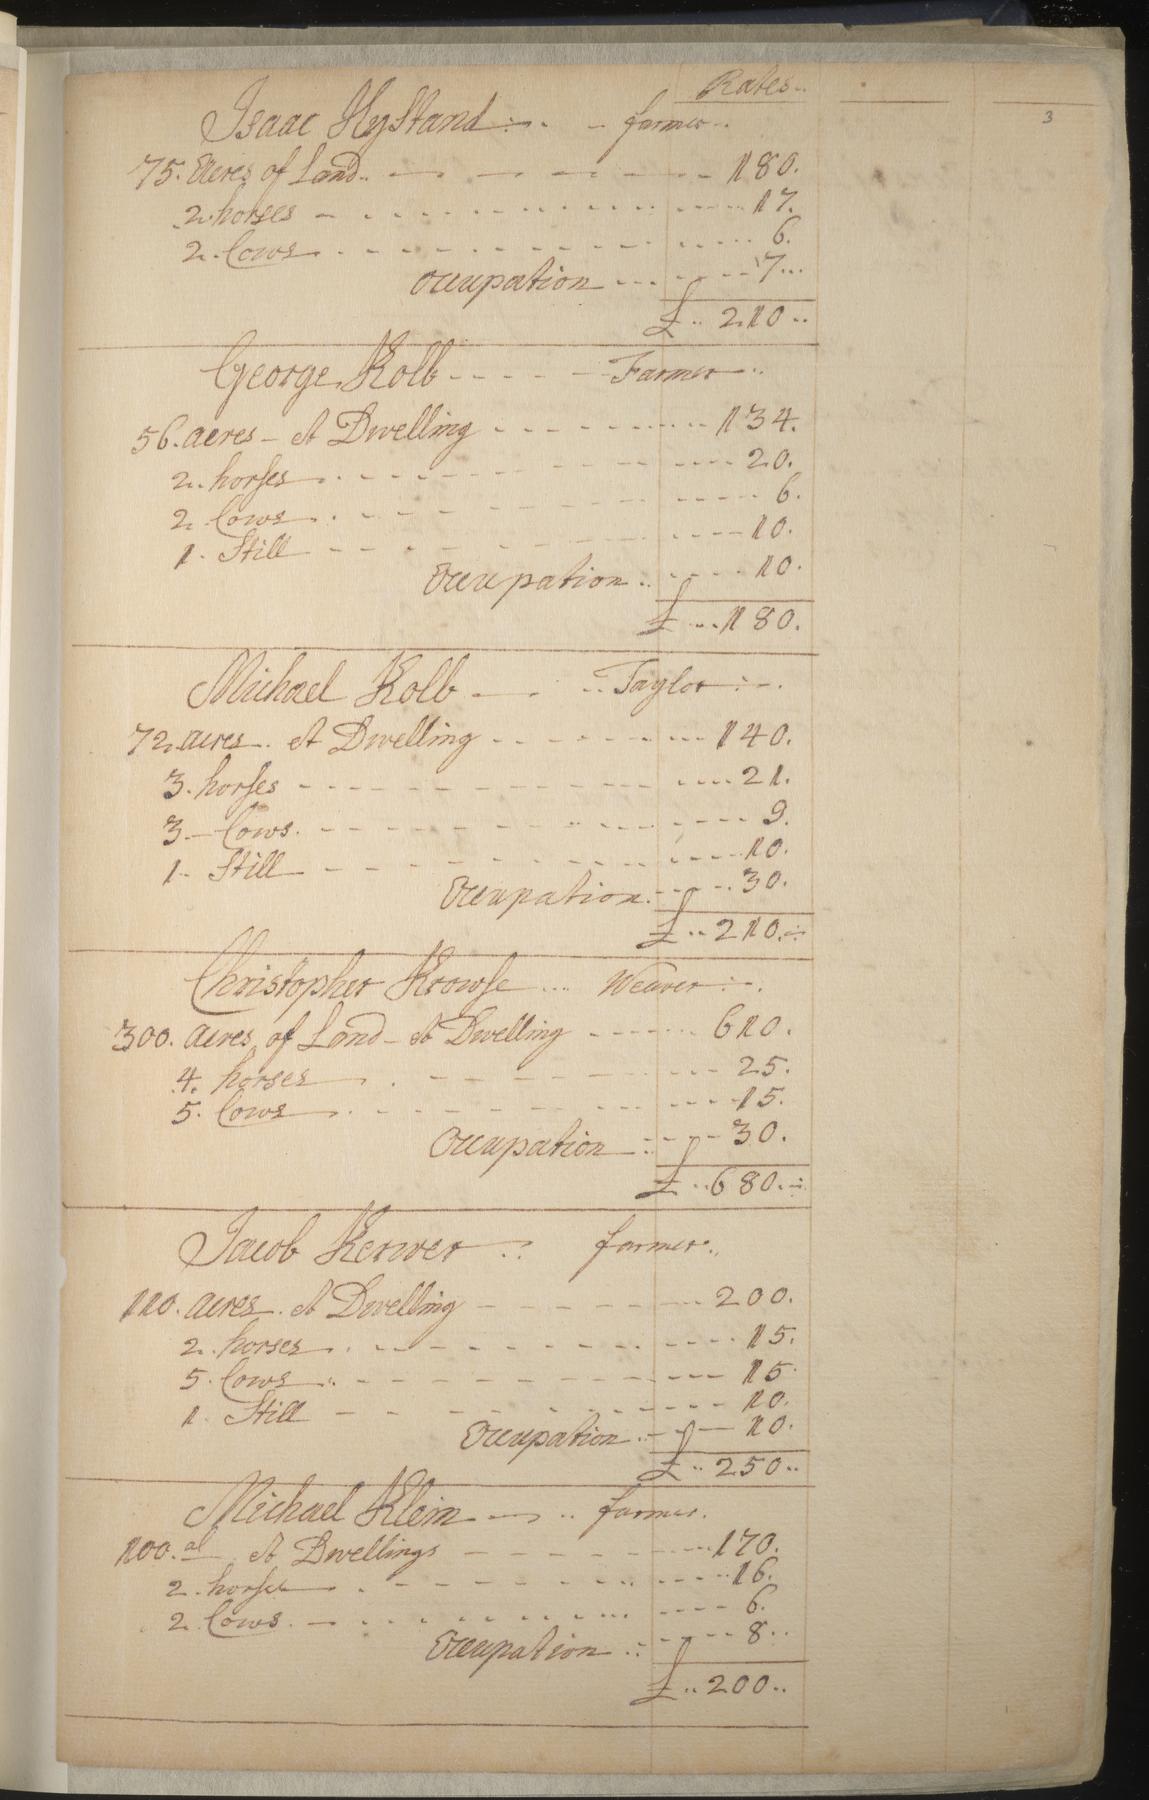 Rates..
3
Isaac HyStand farmer
75. Acres of Land 180.
2. horses 17.
2. Cows 6.
Occupation 7
£ 210
George Kolb Farmer
56. acres - A Dwelling 134.
2. horses 20.
2. Cows 6.
1. Still 10.
Occupation 10.
£ 180.
Michael Kolb Taylor
72. acres. A Dwelling 140.
3. horses 21.
3 - Cows. 9.
1. Still 10.
Occupation. 30.
£ 210.
Christopher Krowse Weaver
300. acres of Land - A Dwelling 610.
4. horses 25.
5. Cows 15.
Occupation 30.
£ 680.
Jacob Kerwer farmer.
110. acres. A Dwelling 200.
2. horses 15.
5. Cows 15
1. Still 10.
Occupation 10.
£ 250
Michael Klein farmer.
100. A Dwellings 170.
2. horses 16.
2. Cows. 6.
Occupation 8
£ 200